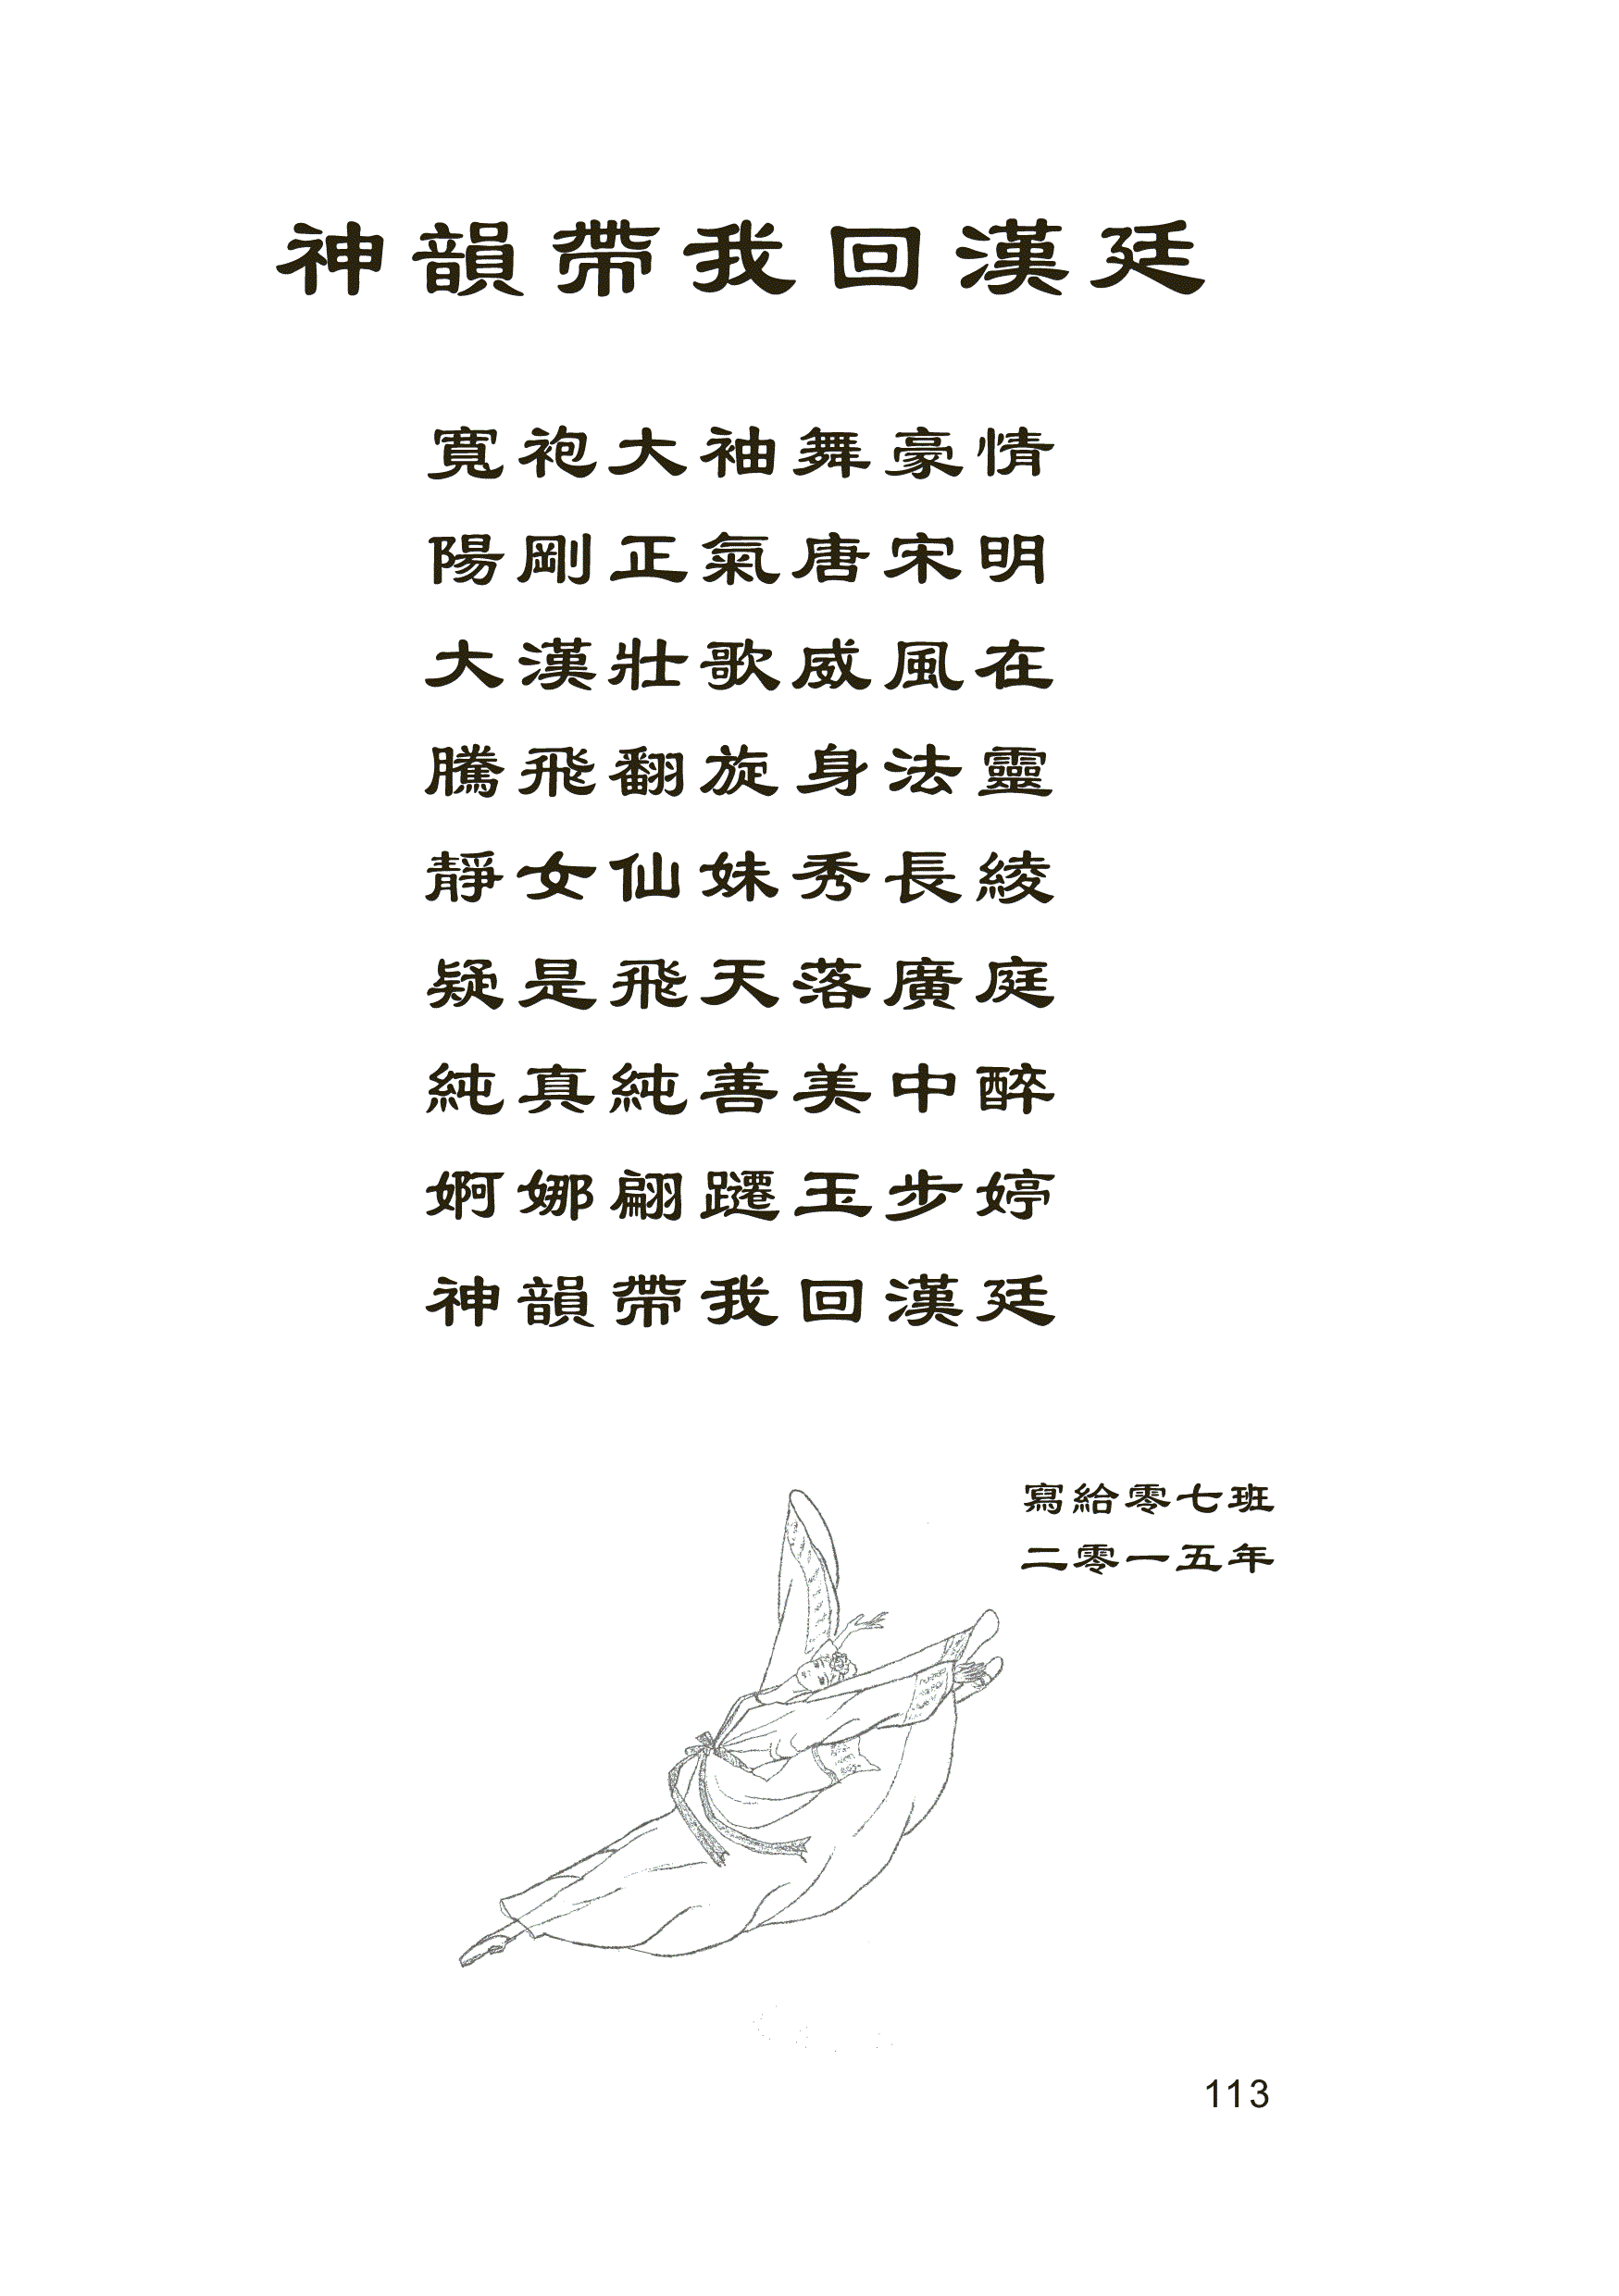 神韻帶我回漢廷
寬袍大袖舞豪情
陽剛正氣唐宋明
大漢壯歌威風在
騰飛翻旋身法靈
靜女仙妹秀長綾
疑是飛天落廣庭
純真純善美中醉
婀娜翩躚玉步婷
神韻帶我回漢廷
寫給零七班
二零一五年
113